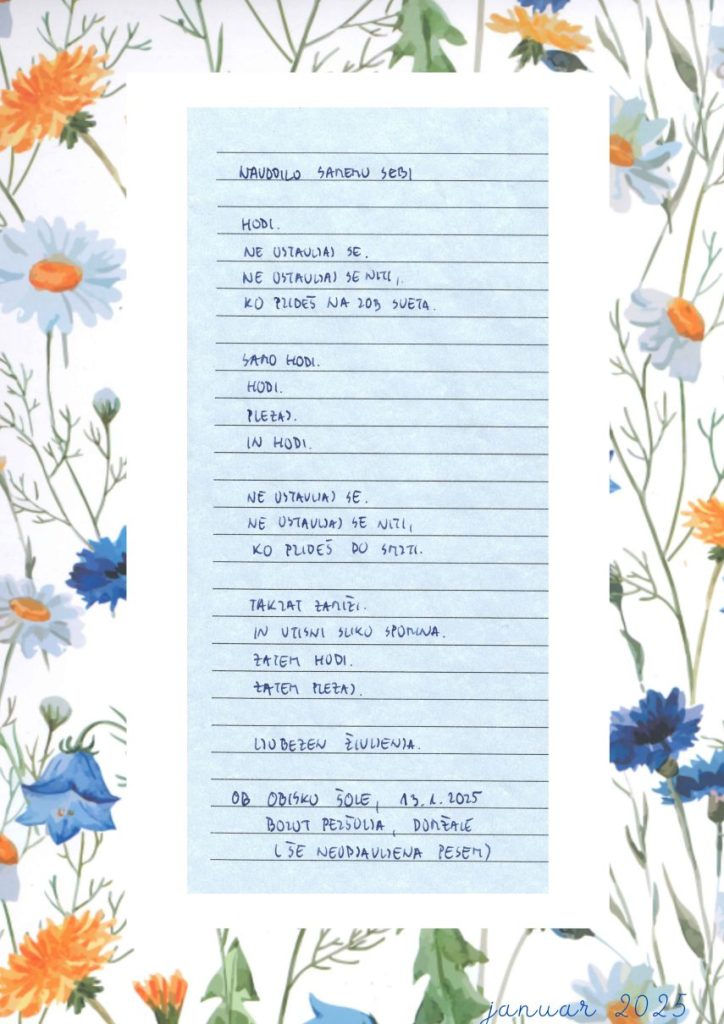 NAVODILO SAMEMU SEBI
HODI.
NE USTAVLJAJ SE.
NE USTAVLJAJ SE NITI,
KO PRIDEŠ NA ROB SVETA.
SAMO HODI.
HODI.
PLEZAJ.
IN HODI.
NE USTAVLJAJ SE.
NE USTAVLJAJ SE NITI,
KO PRIDEŠ DO SMRTI.
TAKRAT ZAMIŽI.
IN UTISNI SLIKO SPOMINA.
ZATEM HODI.
ZATEM PLEZAJ.
LJUBEZEN ŽIVLJENJA.
OB OBISKU ŠOLE, 13.1.2025
BORUT PERŠOLJA, DOMŽALE
(ŠE NEOBJAVLJENA PESEM)
januar 2025